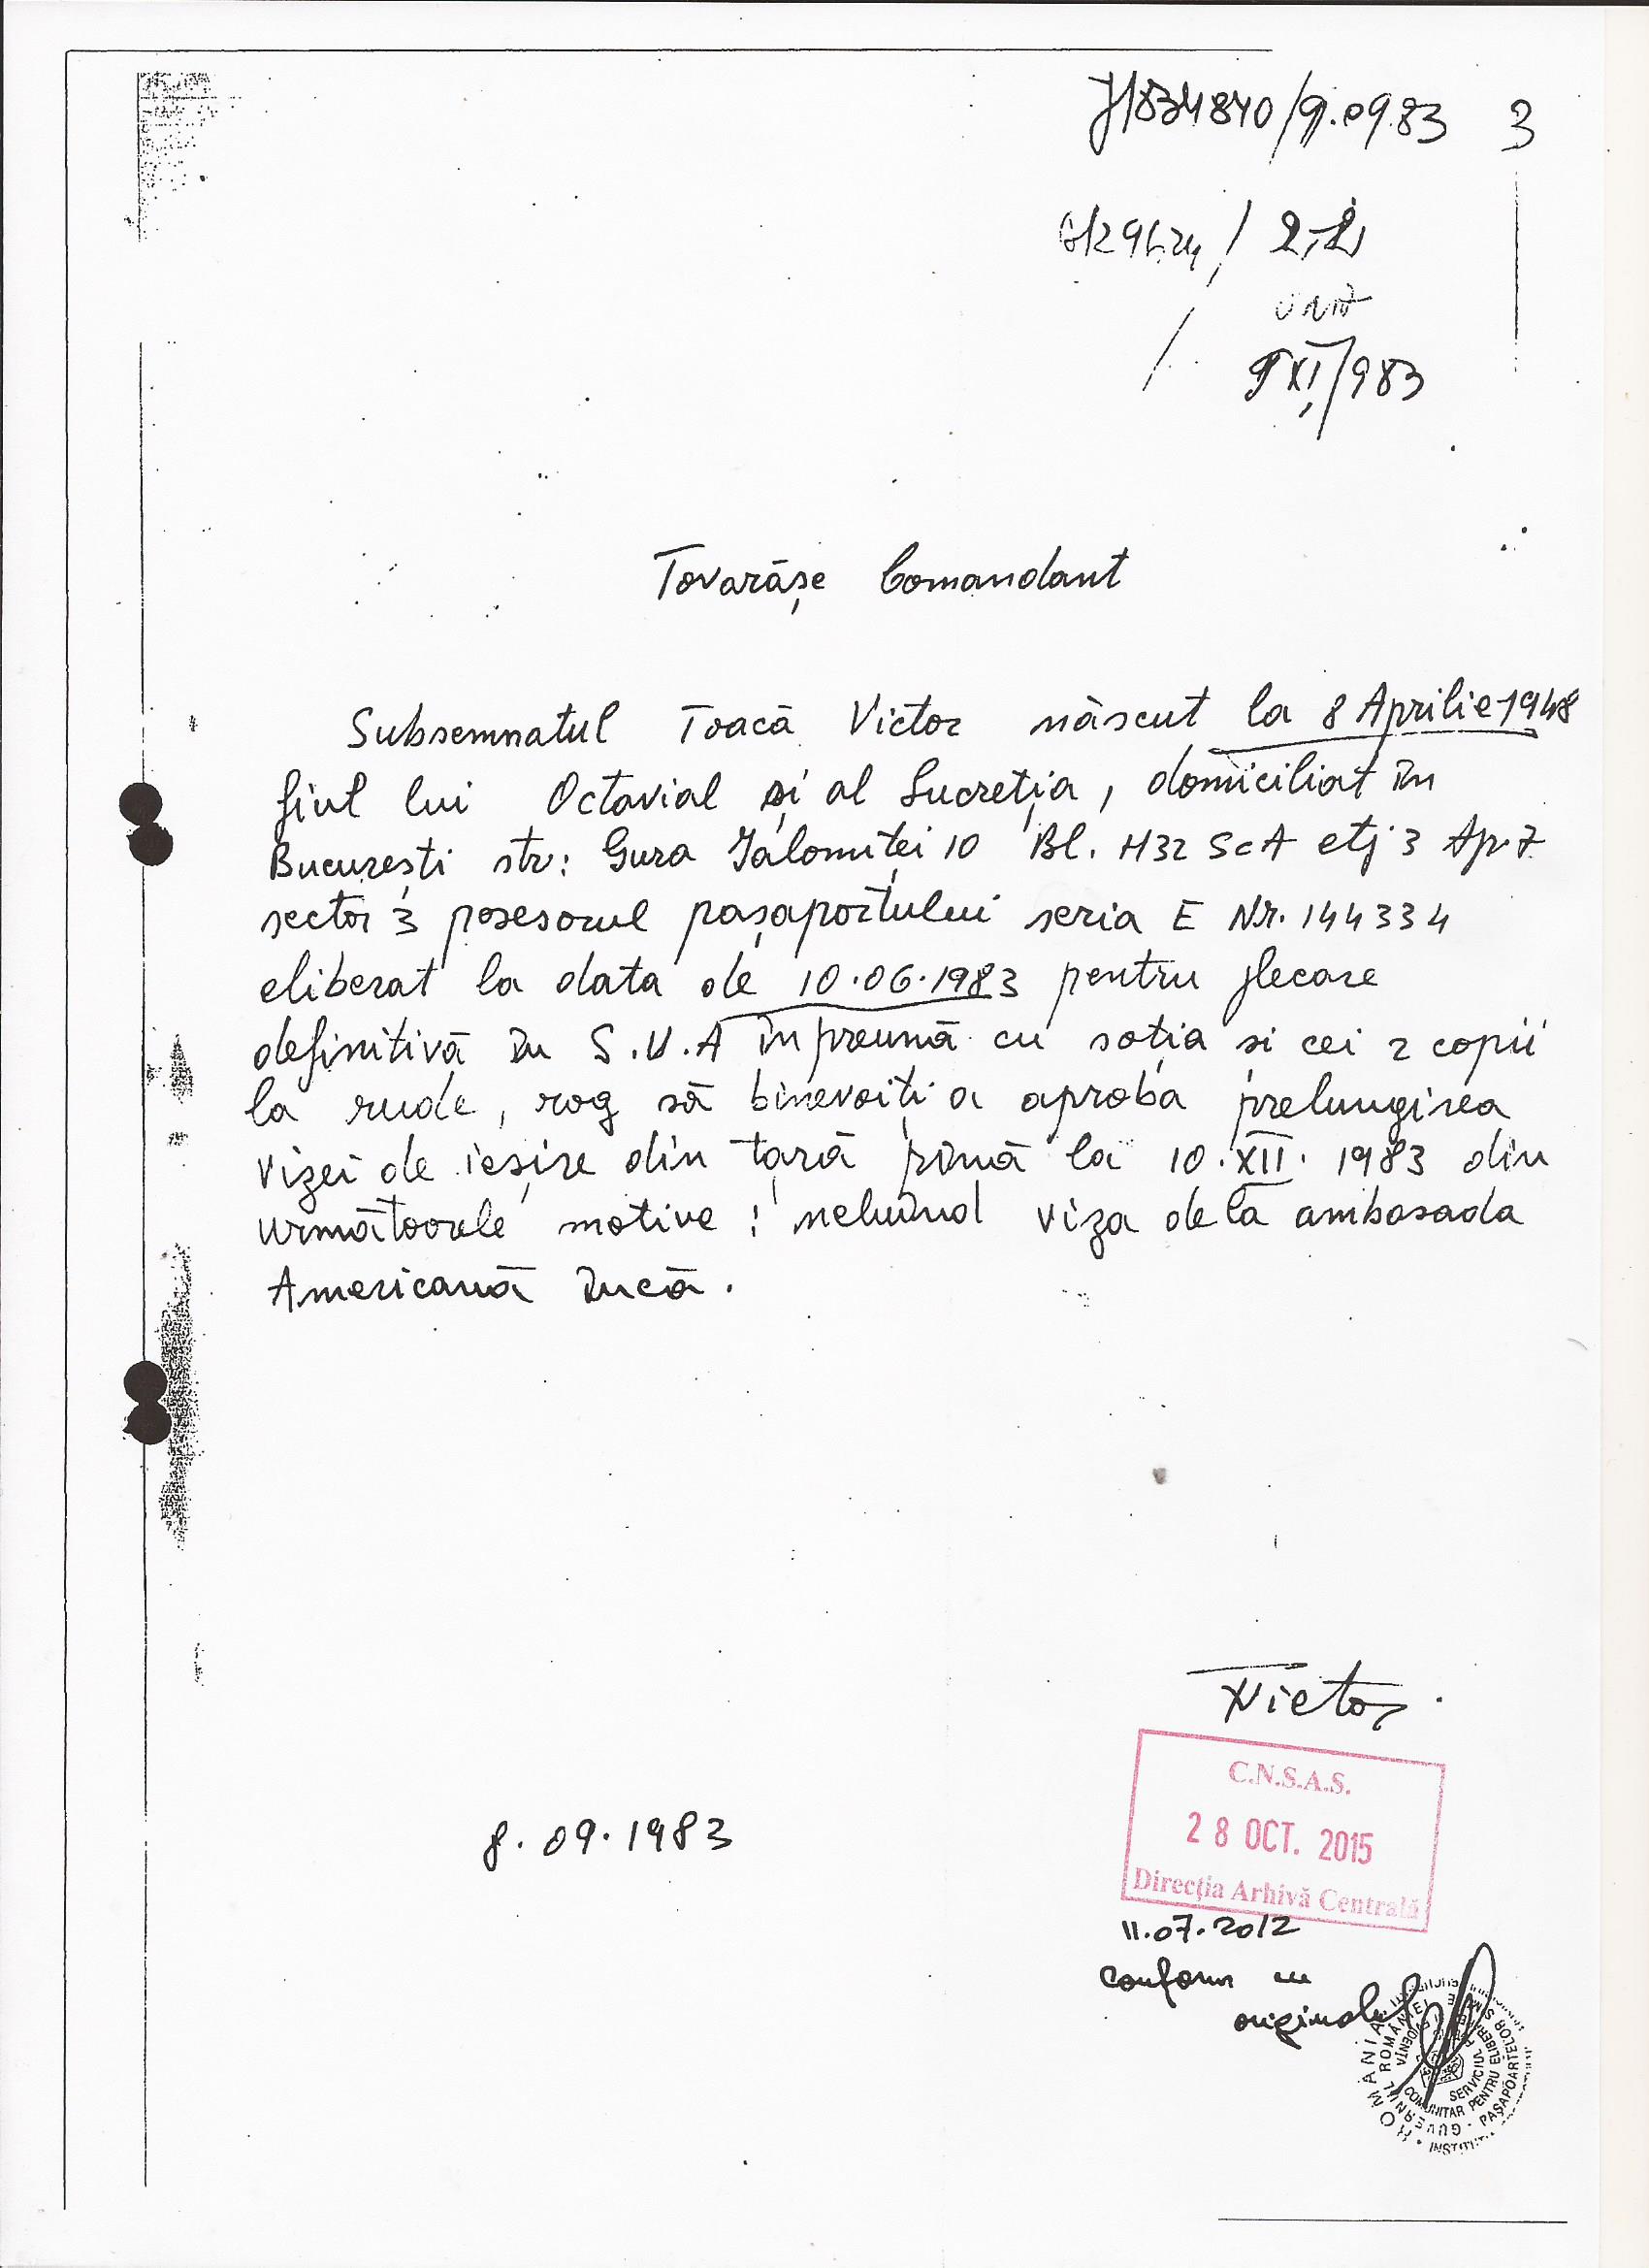 J/834840/9.09.83 3
9 XI/983
Tovarășe Comandant
Subsemnatul Toacă Victor născut la 8 Aprilie 1948
fiul lui Octavial și al Lucreția, domiciliat în
București str: Gura Ialomiței 10 Bl. H32 Sc A etj 3 Ap. 7
sector 3 posesorul pașaportului seria E Nr. 144334
eliberat la data de 10.06.1983 pentru plecare
definitivă în S.U.A înpreună cu soția si cei 2 copii
la rude, rog să binevoiți a aproba prelungirea
vizei de ieșire din țară pînă la 10.XII.1983 din
următoarele motive: neluînd viza de la ambasada
Americană încă.
TVictor.
C.N.S.A.S.
28 OCT. 2015
Direcția Arhivă Centrală
8.09.1983
11.07.2012
Conform cu
originalul
ROMÂNIA
GUVERNUL ROMÂNIEI
SERVICIUL
COMUNITAR PENTRU ELIBERAREA
PAȘAPOARTELOR